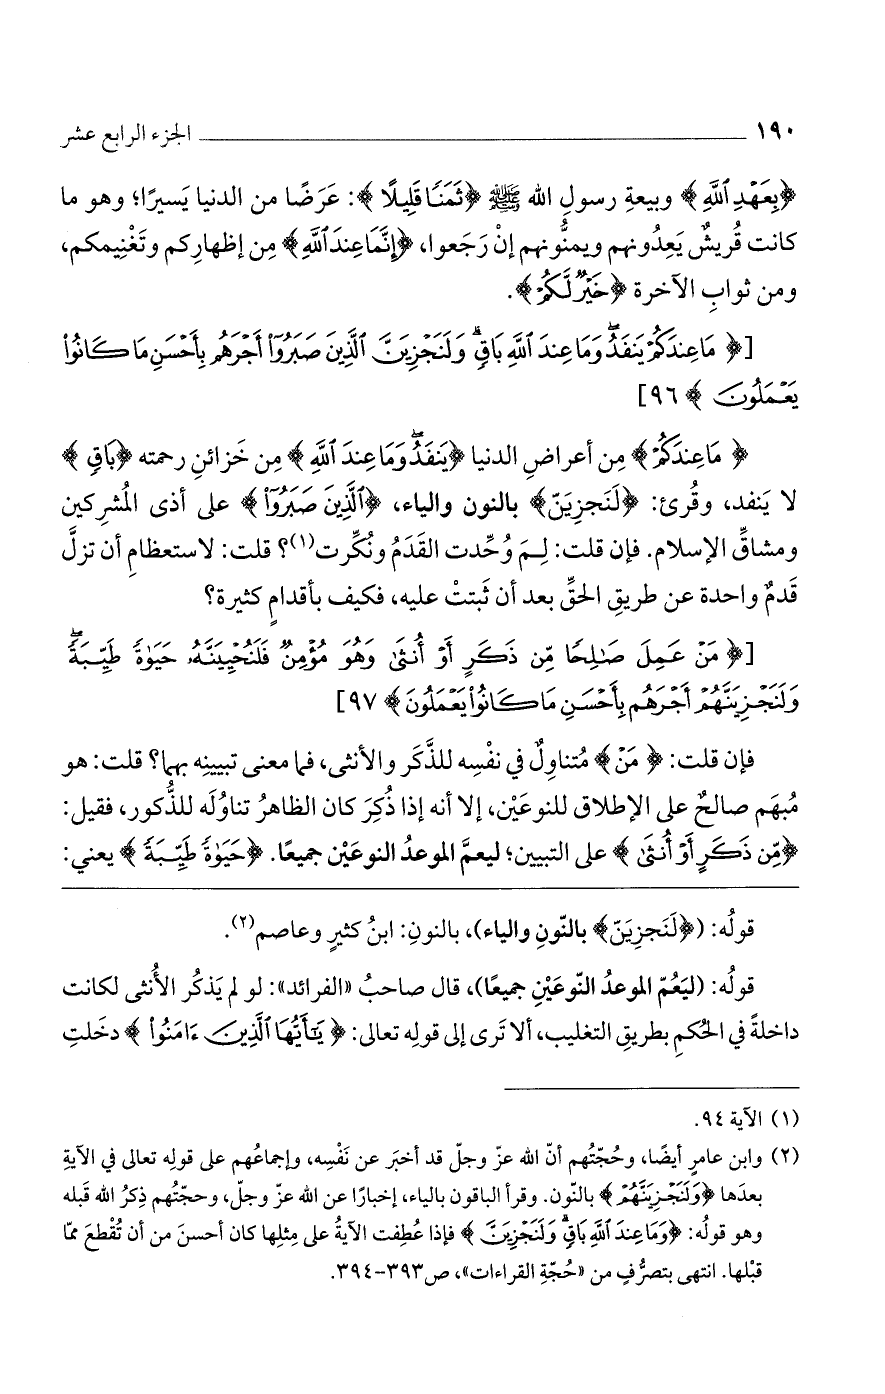 ١٩٠ ـــــــــــــــــــــــــــــــــــــــــــ الجزء الرابع عشر
﴿بِعَهْدِ ٱللَّهِ﴾ وبيعةِ رسولِ الله ﷺ ﴿ثَمَنًا قَلِيلًا﴾: عَرَضًا من الدنيا يَسيرًا؛ وهو ما
كانت قُريشٌ يَعِدُونهم ويمنُّونهم إنْ رَجَعوا، ﴿إِنَّمَا عِندَ ٱللَّهِ﴾ مِن إظهارِكم وتَغْنِيمكم،
ومن ثوابِ الآخرة ﴿خَيْرٌ لَّكُمْ﴾.
[﴿مَا عِندَكُمْ يَنفَدُ ۖ وَمَا عِندَ ٱللَّهِ بَاقٍ ۗ وَلَنَجْزِيَنَّ ٱلَّذِينَ صَبَرُوٓا۟ أَجْرَهُم بِأَحْسَنِ مَا كَانُوا۟
يَعْمَلُونَ﴾ ٩٦]
﴿مَا عِندَكُمْ﴾ مِن أعراضِ الدنيا ﴿يَنفَدُ ۖ وَمَا عِندَ ٱللَّهِ﴾ مِن خَزائنِ رحمته ﴿بَاقٍ﴾
لا يَنفد، وقُرئ: ﴿لَنَجزِيَنّ﴾ بالنون والياء، ﴿ٱلَّذِينَ صَبَرُوٓا۟﴾ على أذى المُشرِكين
ومشاقِّ الإسلام. فإن قلت: لِـمَ وُحِّدت القَدَمُ ونُكِّرت(١)؟ قلت: لاستعظامِ أن تزلَّ
قَدمٌ واحدة عن طريقِ الحقِّ بعد أن ثَبتتْ عليه، فكيف بأقدامٍ كثيرة؟
[﴿مَنْ عَمِلَ صَـٰلِحًا مِّن ذَكَرٍ أَوْ أُنثَىٰ وَهُوَ مُؤْمِنٌ فَلَنُحْيِيَنَّهُۥ حَيَوٰةً طَيِّبَةً ۖ
وَلَنَجْزِيَنَّهُمْ أَجْرَهُم بِأَحْسَنِ مَا كَانُوا۟ يَعْمَلُونَ﴾ ٩٧]
فإن قلت: ﴿مَنْ﴾ مُتناوِلٌ في نفْسِه للذَّكَر والأنثى، فما معنى تبيينِه بهما؟ قلت: هو
مُبهَم صالحٌ على الإطلاق للنوعَيْن، إلا أنه إذا ذُكِرَ كان الظاهرُ تناوُلَه للذُّكور، فقيل:
﴿مِّن ذَكَرٍ أَوْ أُنثَىٰ﴾ على التبيين؛ ليعمَّ الموعدُ النوعَيْن جميعًا. ﴿حَيَوٰةً طَيِّبَةً﴾ يعني:
قولُه: (﴿لَنَجزِيَنّ﴾ بالنّونِ والياء)، بالنونِ: ابنُ كثيرٍ وعاصم(٢).
قولُه: (ليَعُمّ الموعدُ النّوعَيْنِ جميعًا)، قال صاحبُ «الفرائد»: لو لم يَذكُر الأُنثى لكانت
داخلةً في الحُكمِ بطريقِ التغليب، ألا تَرى إلى قولِه تعالى: ﴿يَـٰٓأَيُّهَا ٱلَّذِينَ ءَامَنُوا۟﴾ دخَلتِ
(١) الآية ٩٤.
(٢) وابن عامرٍ أيضًا، وحُجّتُهم أنّ الله عزّ وجلّ قد أخبَر عن نَفْسِه، وإجماعُهم على قولِه تعالى في الآيةِ
بعدَها ﴿وَلَنَجْزِيَنَّهُمْ﴾ بالنّون. وقرأ الباقون بالياء، إخبارًا عن الله عزّ وجلّ، وحجّتُهم ذِكرُ الله قَبله
وهو قولُه: ﴿وَمَا عِندَ ٱللَّهِ بَاقٍ ۗ وَلَنَجْزِيَنَّ﴾ فإذا عُطِفت الآيةُ على مِثلِها كان أحسنَ من أن تُقْطعَ ممّا
قبْلها. انتهى بتصرُّفٍ من «حُجّةِ القراءات»، ص٣٩٣-٣٩٤.